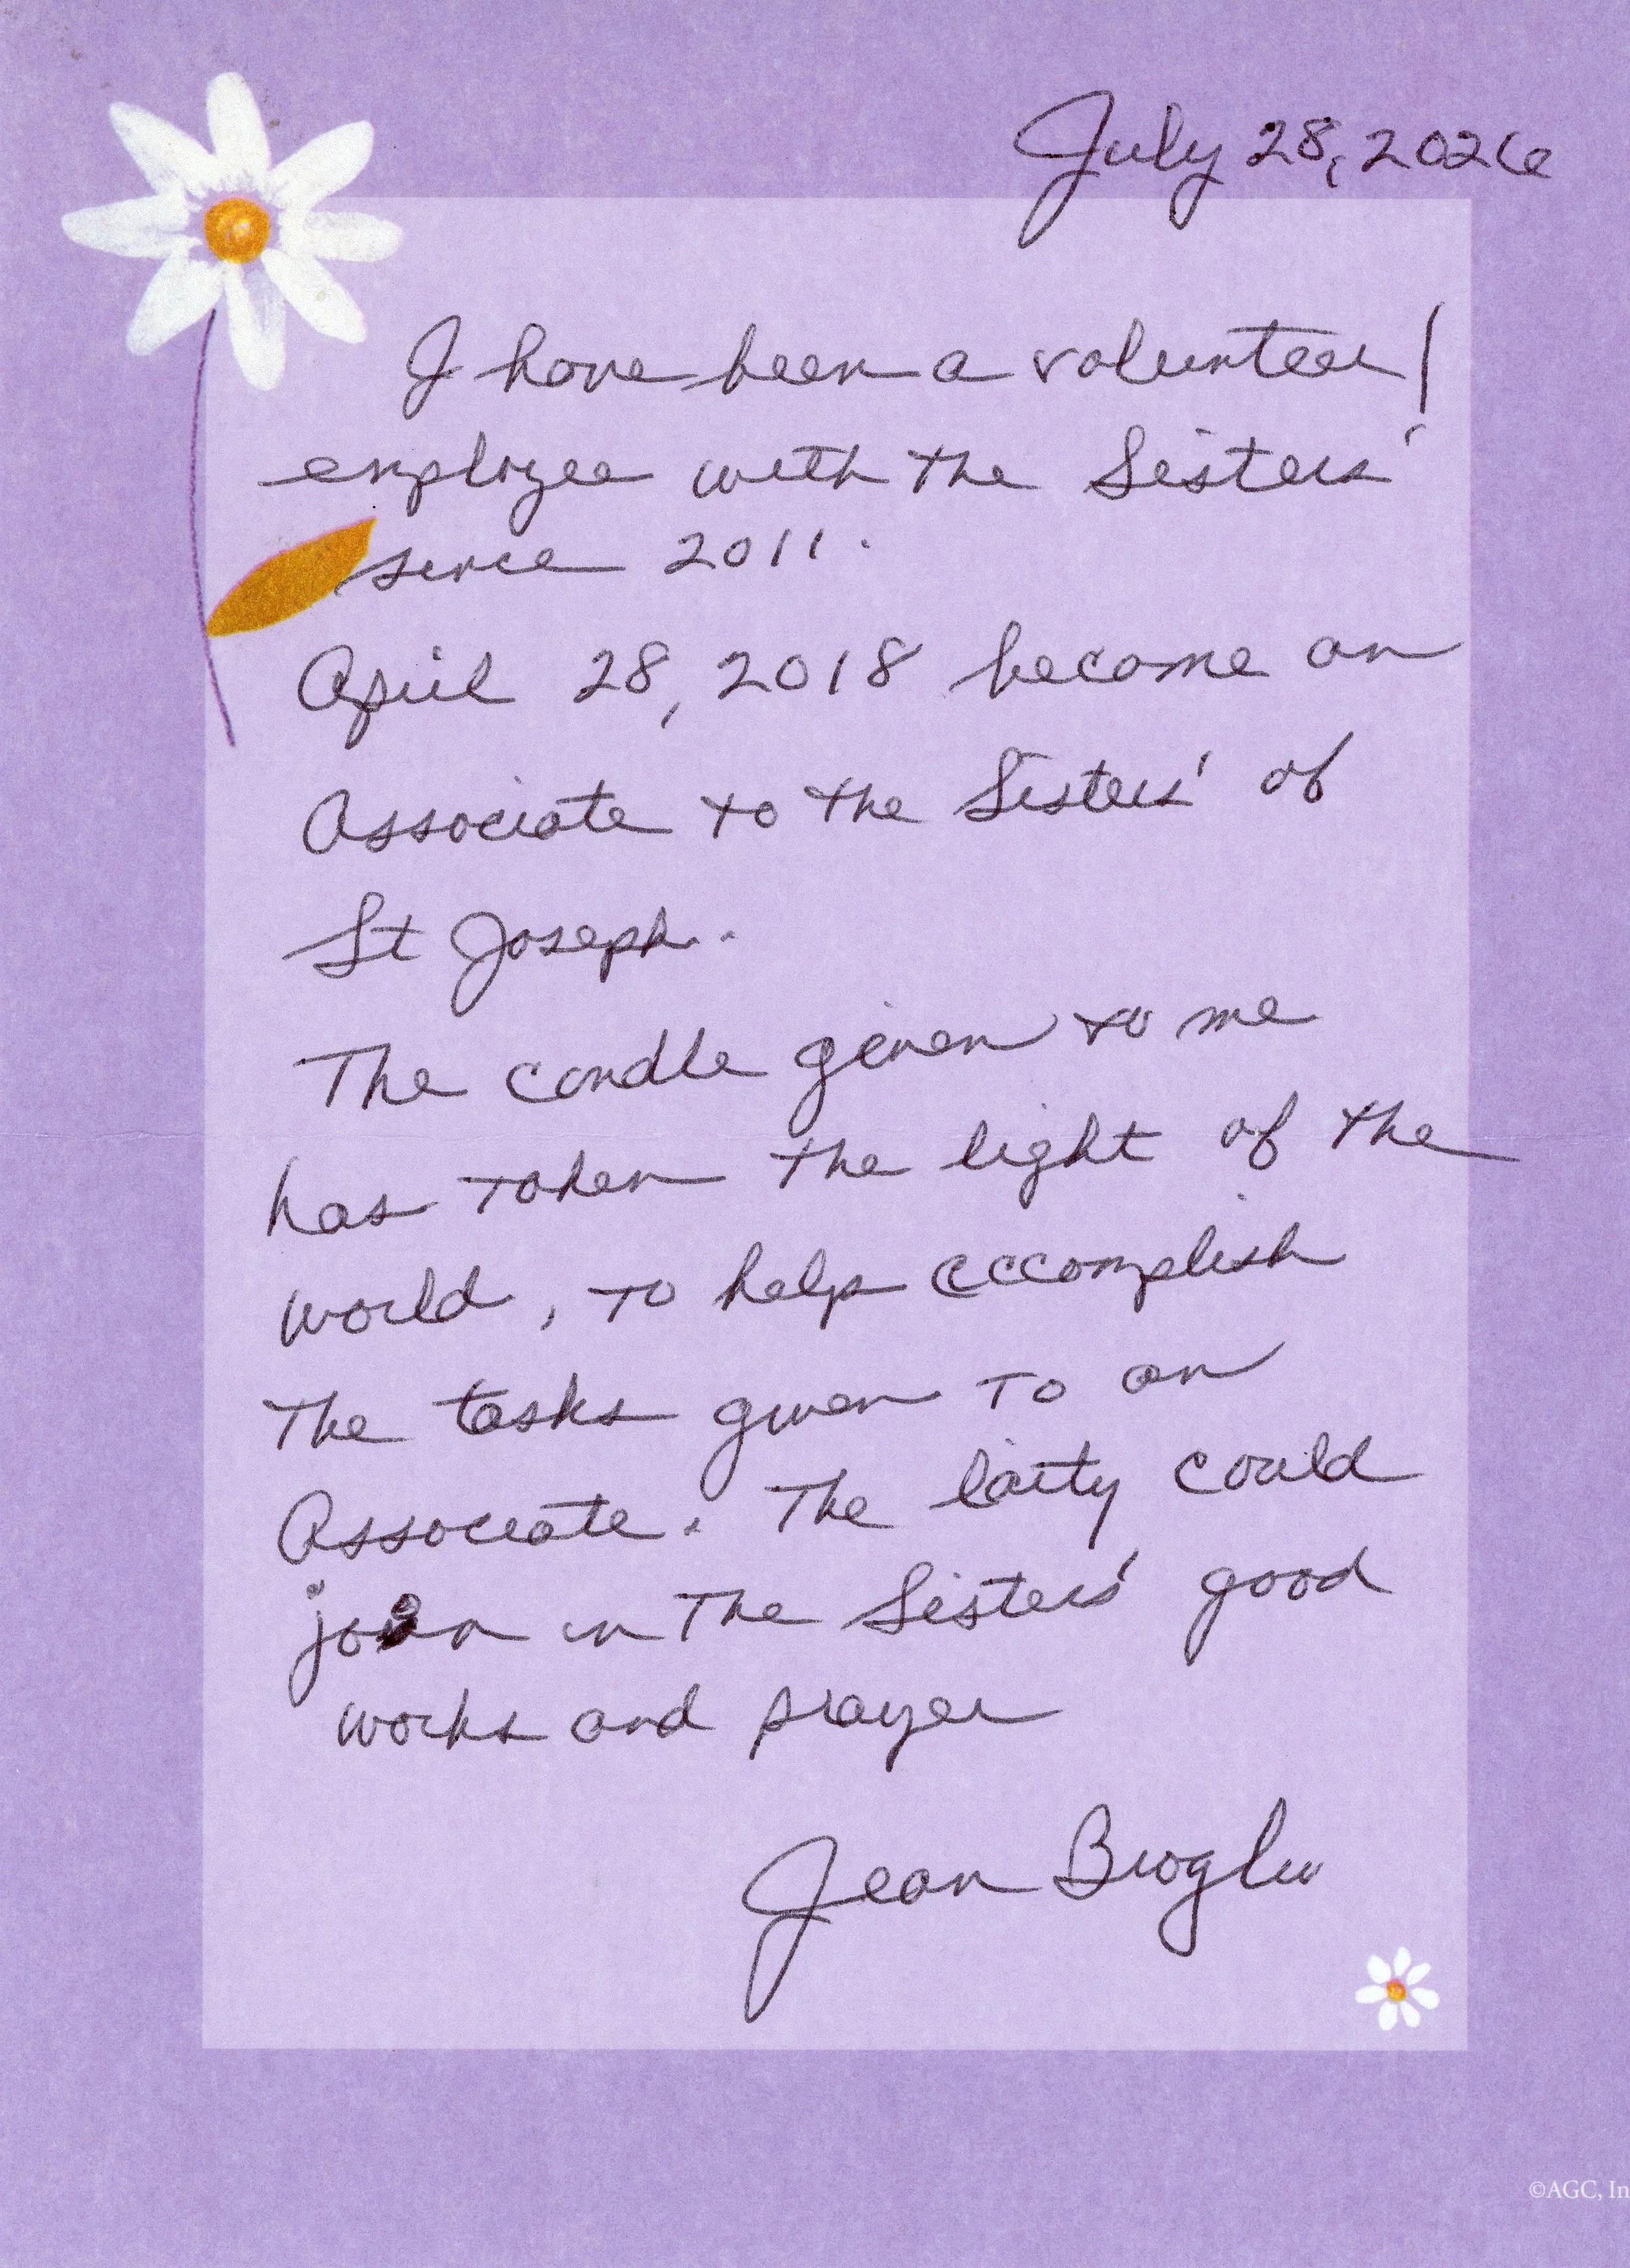 July 28, 2026
I have been a volunteer/
employee with the Sisters'
since 2011.
April 28, 2018 become an
Associate to the Sisters' of
St Joseph.
The candle given to me
has taken the light of the
world, to help accomplish
The tasks given to an
Associate. The laity could
join in The Sisters' good
works and prayer
Jean
©AGC, In